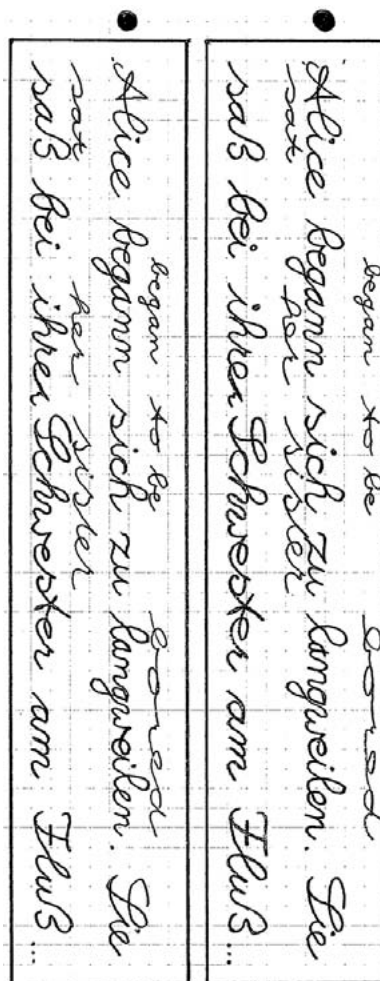 began to be bored
Alice begann sich zu langweilen. Sie
sat her sister
saß bei ihrer Schwester am Fluß...
began to be bored
Alice begann sich zu langweilen. Sie
sat her sister
saß bei ihrer Schwester am Fluß...